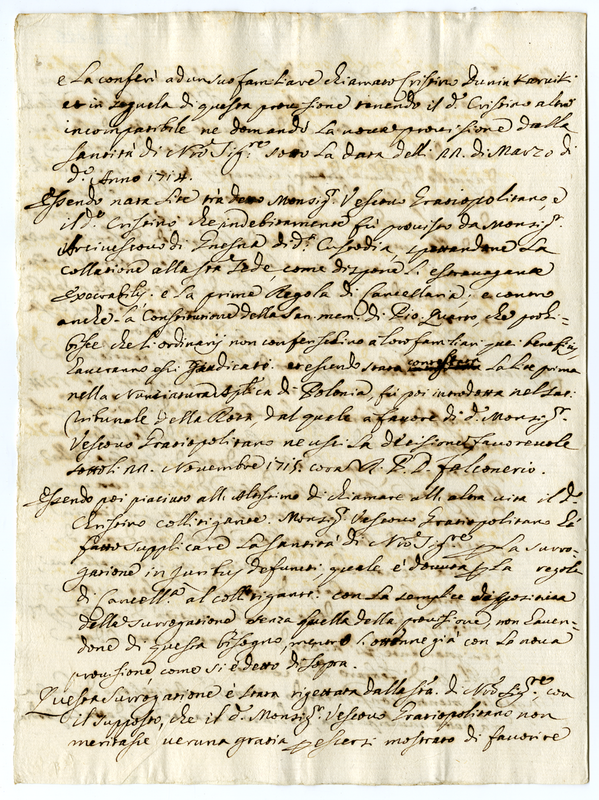 e la conferì ad un suo familiare chiamato Cristino Dunin Karwiki
et in seguela di questa provisione tenendo il d.º Cristino altro
incompatibile ne domandò la nova provisione dalla
Santità di Nro Sig.re sotto la data delli 22. di Marzo di
d.º Anno 1714.
Essendo nata lite trà detto Monsig.r Vescovo Gratiopolitano e
il d.º Cristino che indebitamente fù provisto da Monsig.r
Arcivescovo di Gnesna di d.ª Custodia, spettandone la
collatione alla Sta Sede, come dispone l'estravagante
Execrabilis: e la prima Regola di Cancellaria; e contro
anche la Constitutione della san: mem: di Pio Quarto, che prohi=
bisce che li ordinarij non conferischino a loro familiari quei beneficij,
l'averanno essi giudicati. et essendo stata la lite prima
nella Nunciatura Ap.lica di Polonia, fù poi introdotta nel Sac:
Tribunale della Rota, dal quale a favore di d.º Monsig.r
Vescovo Gratiopolitano ne uscì la decisione favorevole
sotto li 22. Novembre 1715. cora R. P. D. Falconerio.
Essendo poi piaciuto all'Altissimo di chiamare all'altra vita il d.º
Christino collitigante. Monsig.r Vescovo Gratiopolitano hà
fatto supplicare la Santità di Nro Sig.re per la surro=
gatione in juribus defuncti, quale è dovuta per la regola
di Cancell.ria al collitigante: con la semplice
della surrogatione senza quella della provisione, non haven=
done di questa bisogno, mentre l'ottenne già con la nova
provisione, come si è detto di sopra.
Questa surrogatione è stata rigettata dalla Stà. di Nro Sig.re, con
il supposto, che il d.º Monsig.r Vescovo Gratiopolitano non
meritasse veruna gratia per essersi mostrato di favorire